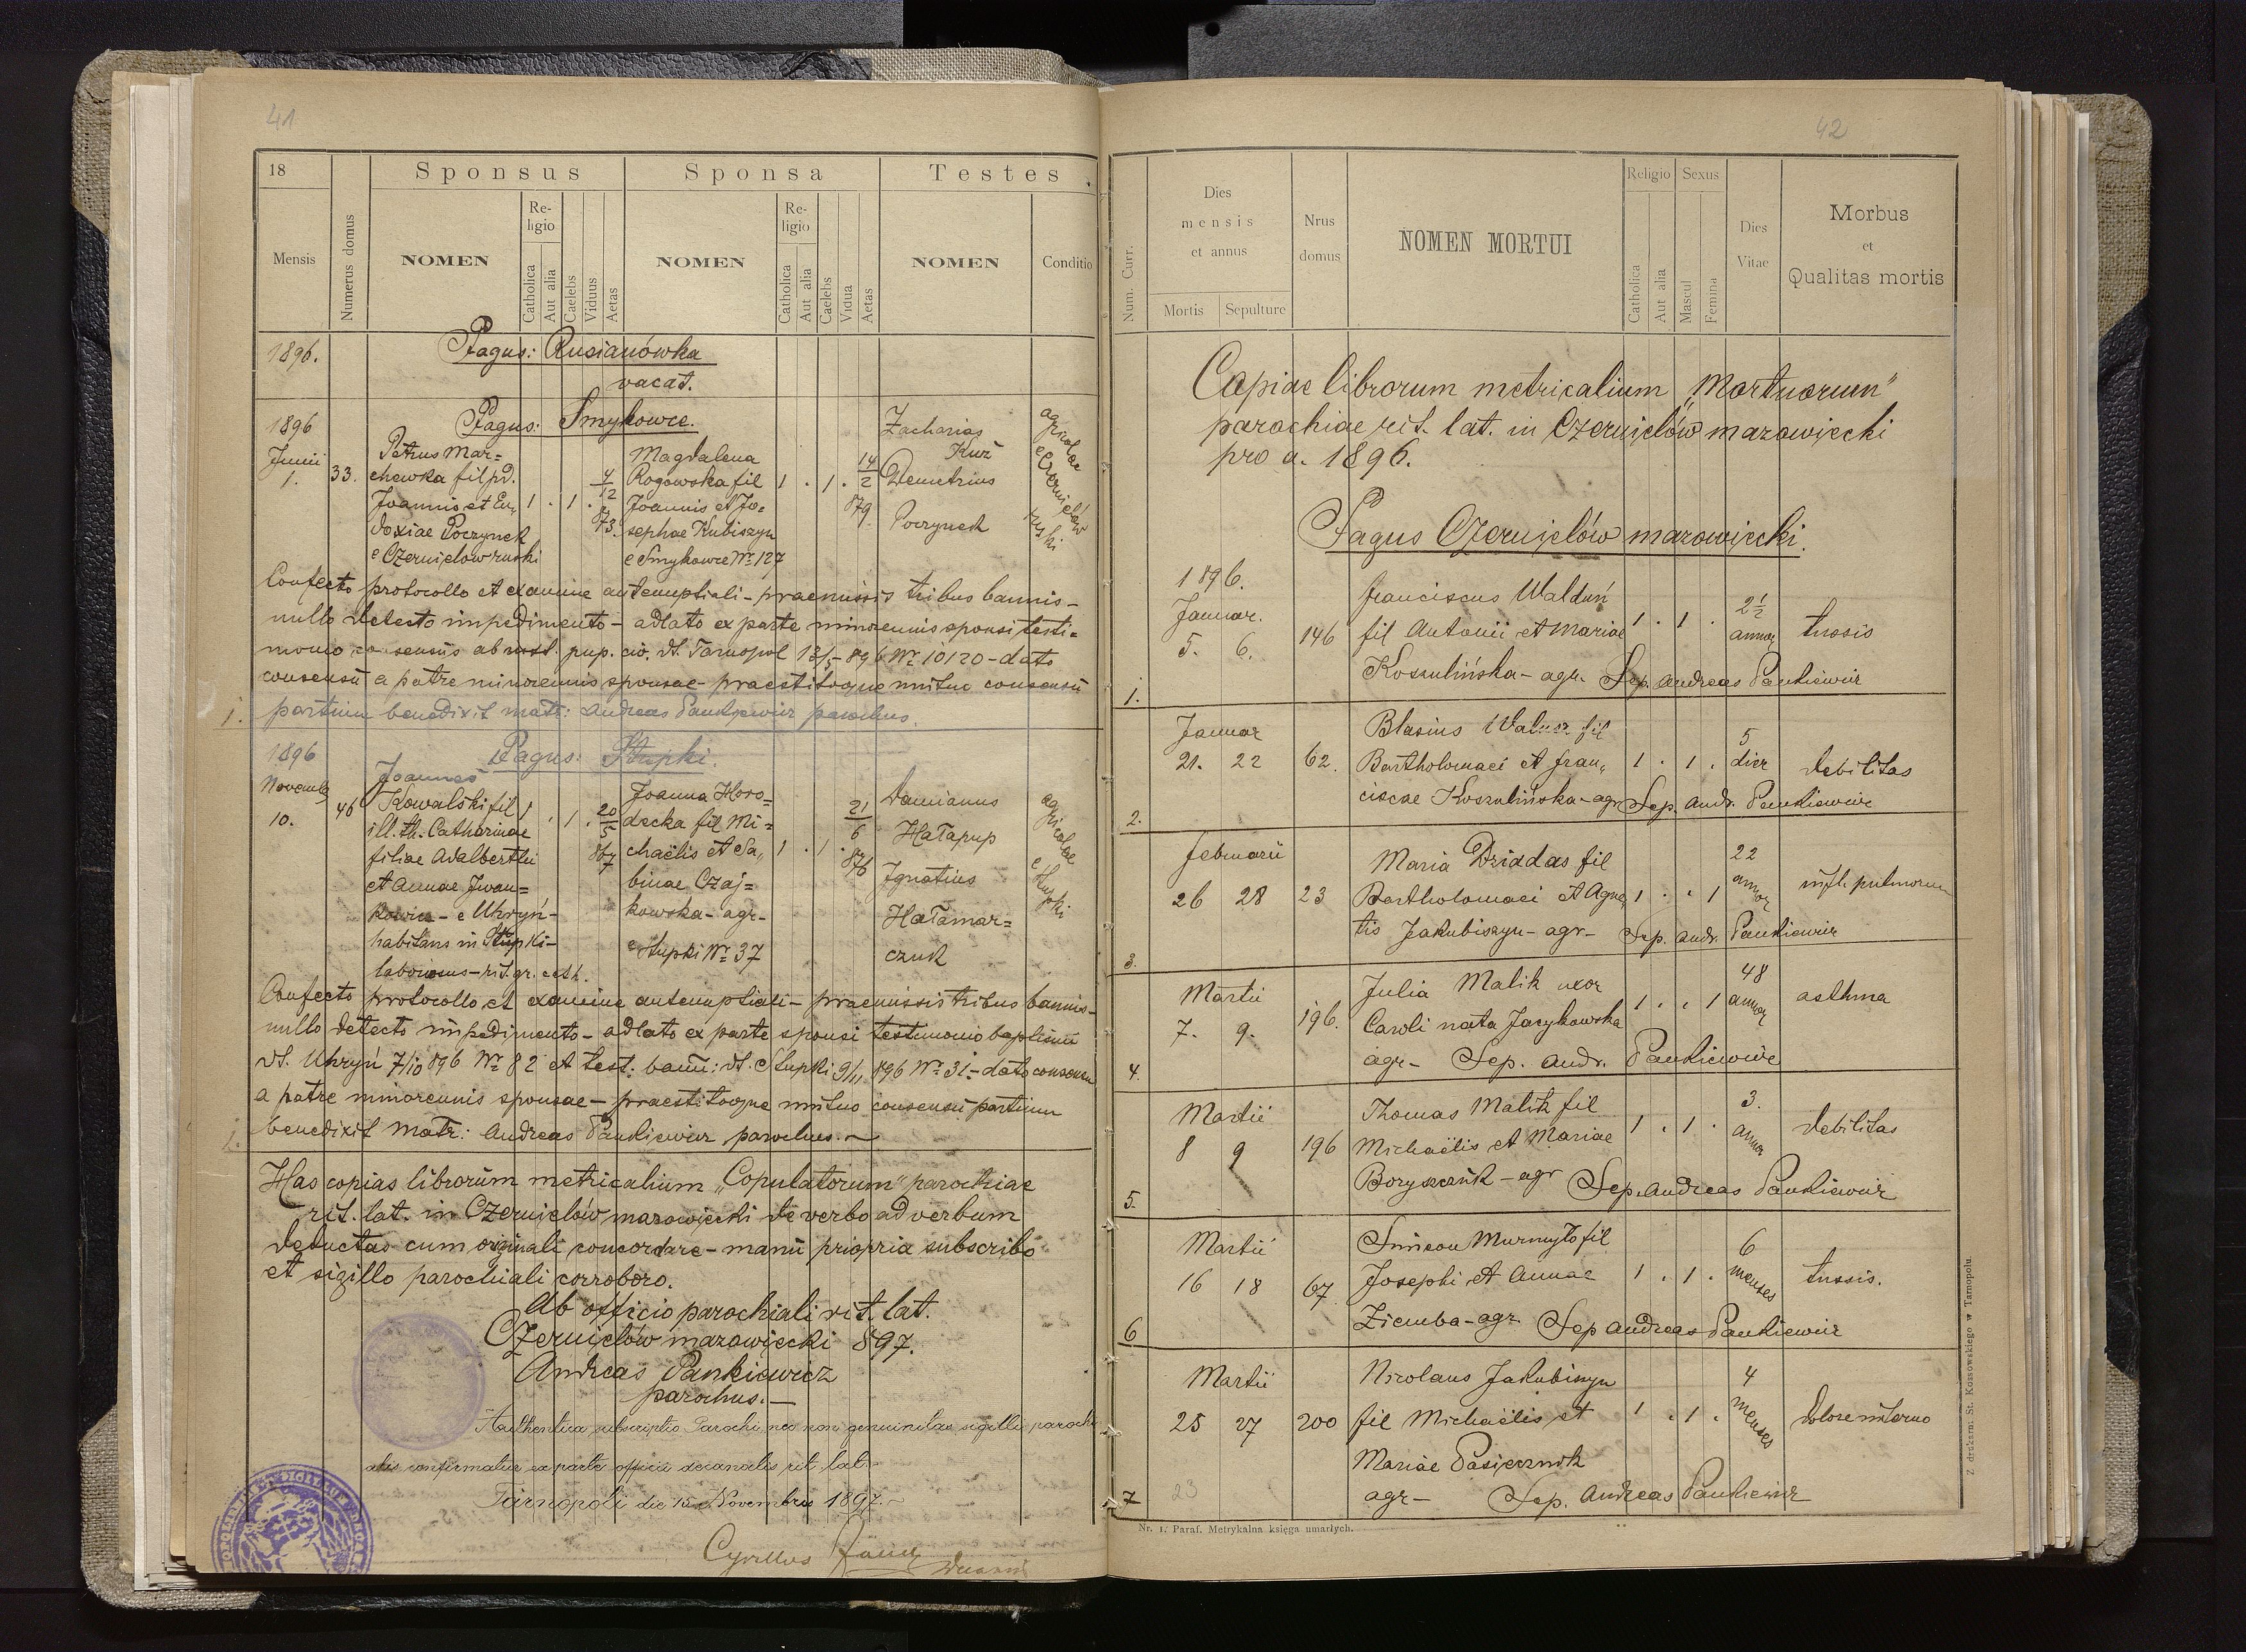 41
18
Sponsus
Sponsa
Testes
Mensis
Numerus domus
NOMEN
Re-
ligio
Catholica
Aut alia
Caelebs
Viduus
Aetas
NOMEN
Re-
ligio
Catholica
Aut alia
Caelebs
Vidua
Aetas
NOMEN
Conditio
1896.
Pagus: Rusianówka
vacat.
1896
Pagus: Smykowce.
Junii
1.
33.
Petrus Mar=
chewka fil pd.
Joannis et Eu„
doxiae Poczynek
e Czernielow ruski
1 . 1 .
4
12
873.
Magdalena
Rogowska fil
Joannis et Jo=
sephae Kubiszyn
e Smykowce Nr 127
1 . 1 .
14
2
879.
Zacharias
Kuź
Demetrius
Poczynek
agricolae
e Czernielów
ruski
Confecto protocollo et examine antenuptiali - praemissis tribus bannis -
nullo detecto impedimento - adlato ex parte minorennis sponsi testi=
monio consensus ab pup. dt. Tarnopol 13/5 - 896 Nr 10120 - dato
consensu a patre minorennis sponsae - praestitoque mutuo consensu
1. partium benedixit matr: Andreas Pankiewicz parochus.
1896
Pagus: Stupki.
Novemb
10.
46
Joannes
Kowalski fil
ill. th. Catharinae
filiae Adalberthi
et Annae Iwan=
kowicz - e Uhryń -
habitans in Stupki -
laboriosus - rit. gr. cath.
1 . 1 .
20
5
867
Joanna Horo=
decka fil Mi=
chaëlis et Sa„
binae Czaj=
kowska - agr -
e Stupki Nr 37
1 . 1 .
21
6
876
Damianus
Hałapup
Ignatius
Hałamar=
czuk
agricolae
e Stupki
Confecto protocollo et examine antenuptiali - praemissis tribus bannis -
nullo detecto impedimento - adlato ex parte sponsi testimonio baptismi
dt. Uhryń 7/10 896 Nr 82 et test. bann: dt. Stupki 9/11 896 Nr 31 - dato consensu
a patre minorennis sponsae - praestitoque mutuo consensu partium
1. benedixit Matr: Andreas Pankiewicz parochus. -
Has copias librorum metricalium „Copulatorum" parochiae
rit. lat. in Czernielów mazowiecki de verbo ad verbum
deductas cum originali concordare - manu propria subscribo
et sigillo parochiali corroboro.
Ab officio parochiali rit. lat.
Czernielów mazowiecki 897.
Andreas Pankiewicz
parochus. -
Authentica subscriptio Parochi nec non genuinitas sigilli parochi
alis confirmatur ex parte officii decanalis rit. lat.
Tarnopoli die 15 Novembris 1897. -
Cyrillus
42
Num. Curr.
Dies
mensis
et annus
Mortis
Sepulture
Nrus
domus
NOMEN MORTUI
Religio
Catholica
Aut alia
Sexus
Mascul
Femina
Dies
Vitae
Morbus
et
Qualitas mortis
Copiae librorum metricalium „Mortuorum"
parochiae rit. lat. in Czernielów mazowiecki
pro a. 1896.
Pagus Czernielów mazowiecki.
1896.
Januar.
5. 6.
146
Franciscus Walduń
fil Antonii et Mariae
Koszulińska - agr. Sep. Andreas Pankiewicz
1 . 1 .
2½
annor
tussis
1.
Januar
21. 22
62.
Blasius fil
Bartholomaei et Fran„
ciscae Koszulińska - agr Sep. Andr. Pankiewicz
1 . 1 .
5
dier
debilitas
2.
Februarii
26 28
23
Maria Dziadas fil
Bartholomaei et Agne
tis Jakubiszyn - agr - Sep. Andr. Pankiewicz
1 . . 1
22
annor
infl. pulmonum
3.
Martii
7. 9.
196.
Julia Malik uxor
Caroli nata Jacykowska
agr - Sep. Andr. Pankiewicz
1 . . 1
48
annor
asthma
4.
Martii
8 9
196
Thomas Malik fil
Michaëlis et Mariae
Boryszczuk - agr Sep. Andreas Pankiewicz
1 . 1 .
3.
annor
debilitas
5.
Martii
16 18
67
Simeon Murmyło fil
Josephi et Annae
Ziemba - agr. Sep Andreas Pankiewicz
1 . 1 .
6
menses
tussis.
6
Martii
25 27
200
Nicolaus Jakubiszyn
fil Michaëlis et
Mariae Pasiecznik
agr - Sep. Andreas Pankiewicz
1 . 1 .
4
menses
dolore interno
7
23
Nr. 1. Paraf. Metrykalna księga umarłych.
Z drukarni St. Kossowskiego w Tarnopolu.